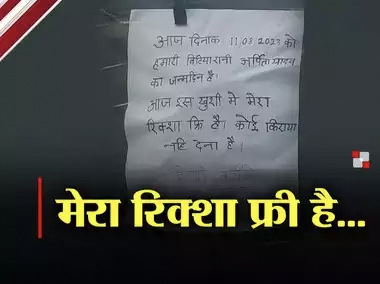 आज दिनांक 11.03.2023 को
हमारी बिटियारानी अर्पिता यादव
का जन्मदिन है।
आज इस खुशी मे मेरा
रिक्शा फ्रि है। कोई किराया
नहि देना है।
मेरा रिक्शा फ्री है...